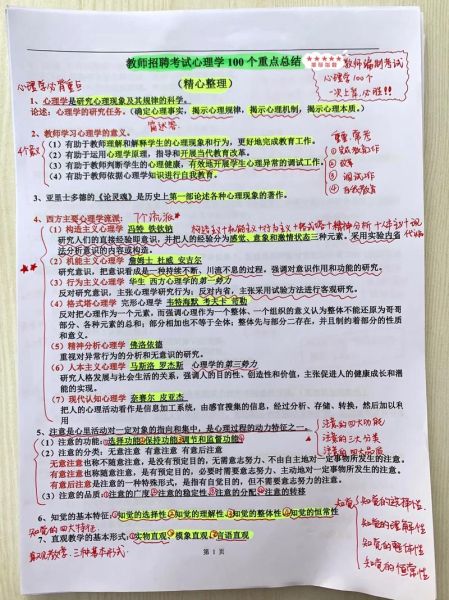 教师招聘考试心理学100个重点总结
（精心整理）
教师编制考试
心理学100个
一次上岸,必胜!!
心理学必背重点
1、心理学是研究心理现象及其规律的科学。
论述：心理学的研究任务。（确定心理事实，揭示心理规律，揭示心理机制，揭示心理本质。）
简述答
2、教师学习心理学的意义。
4个意义
（1）有助于教师理解和解释学生的心理现象和行为，更好地完成教育工作。
（2）有助于运用心理学原理，指导和开展当代教育改革。
（3）有助于教师判断学生的心理健康，有效地开展学生心理异常的调试工作。
（4）有助于教师依据心理学知识进行自我教育。
重要,常考
①完成教育工作
②改革
③调试工作
④自我教育
3、亚里士多德的《论灵魂》是历史上第一部论述各种心理现象的著作。
4、西方主要心理学流派：
7个流派
构造主义+机能主义+行为主义+格式塔+精神分析+人本主义+现代认知
（1）构造主义心理学 冯特 铁钦纳
研究人们的直接经验即意识，并把人的经验分为感觉、意象和激情状态三种元素。采用实验内省
法分析意识的内容或构造。
（2）机能主义心理学 詹姆士 杜威 安吉尔
研究意识，把意识看成是一种持续不断、川流不息的过程。强调对意识作用和功能的研究。
（3）行为主义心理学 华生 西方心理学的第一势力
反对研究意识，主张心理学研究行为；反对内省，主张采用试验方法进行客观研究。
（4）格式塔心理学 完形心理学 韦特海默 考夫卡 苛勒
反对把心理作为一个元素，而强调心理作为一个整体、一个组织的意义认为整体不能还原为哥哥
部分、各种元素的总和；部分相加也不等于全体；整体先与部分二存在，并且制约着部分的性质
和意义。
（5）精神分析心理学 佛洛依德
重视对异常行为的分析和无意识的研究。
（6）人本主义心理学 马斯洛 罗杰斯 心理学的第三势力
研究人格发展与社会生活的关系，强调人的目的、创造性和价值，主张促进人的健康成长和潜
能的实现。
（7）现代认知心理学 奈赛尔 皮亚杰
把人的心理活动看作是信息加工系统，由感官搜集的信息，经过分析、存储、转换，然后加以利
用
5、注意是心里活动对一定对象的指向和集中，是心理过程的动力特征之一。
（1）注意的功能：①选择功能②保持功能③调节和监督功能
（2）注意的分类：无意注意 有意注意 有意后注意
无意注意也称不随意注意，是没有预定目的，无需意志努力、不由自主地对一定事物所发生的注意。
有意注意也称随意注意，是有预定目的，必要时需要意志努力、主动地对一定事物所发生的注意。
有意后注意是注意的一种特殊形式，是指有自觉目的，但不需要意志努力的注意。
（3）注意的品质：①注意的广度②注意的稳定性③注意的分配④注意的转移
注意的四大功能
注意的三大分类
注意的四大品质
6、知觉的基本特征：①知觉的选择性②知觉的理解性③知觉的整体性④知觉的恒常性
知觉的四大特征
7、直观教学的基本形式：①实物直观②模象直观③言语直观
直观教学：三种基本形式
知觉
知觉的选择性
知觉的理解性
知觉的整体性
知觉的恒常性
第 1 页